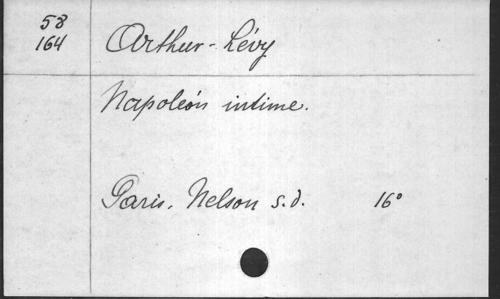 58
164
Arthur-Lévy
Napoléon intime.
Paris, Nelson s.d. 16°